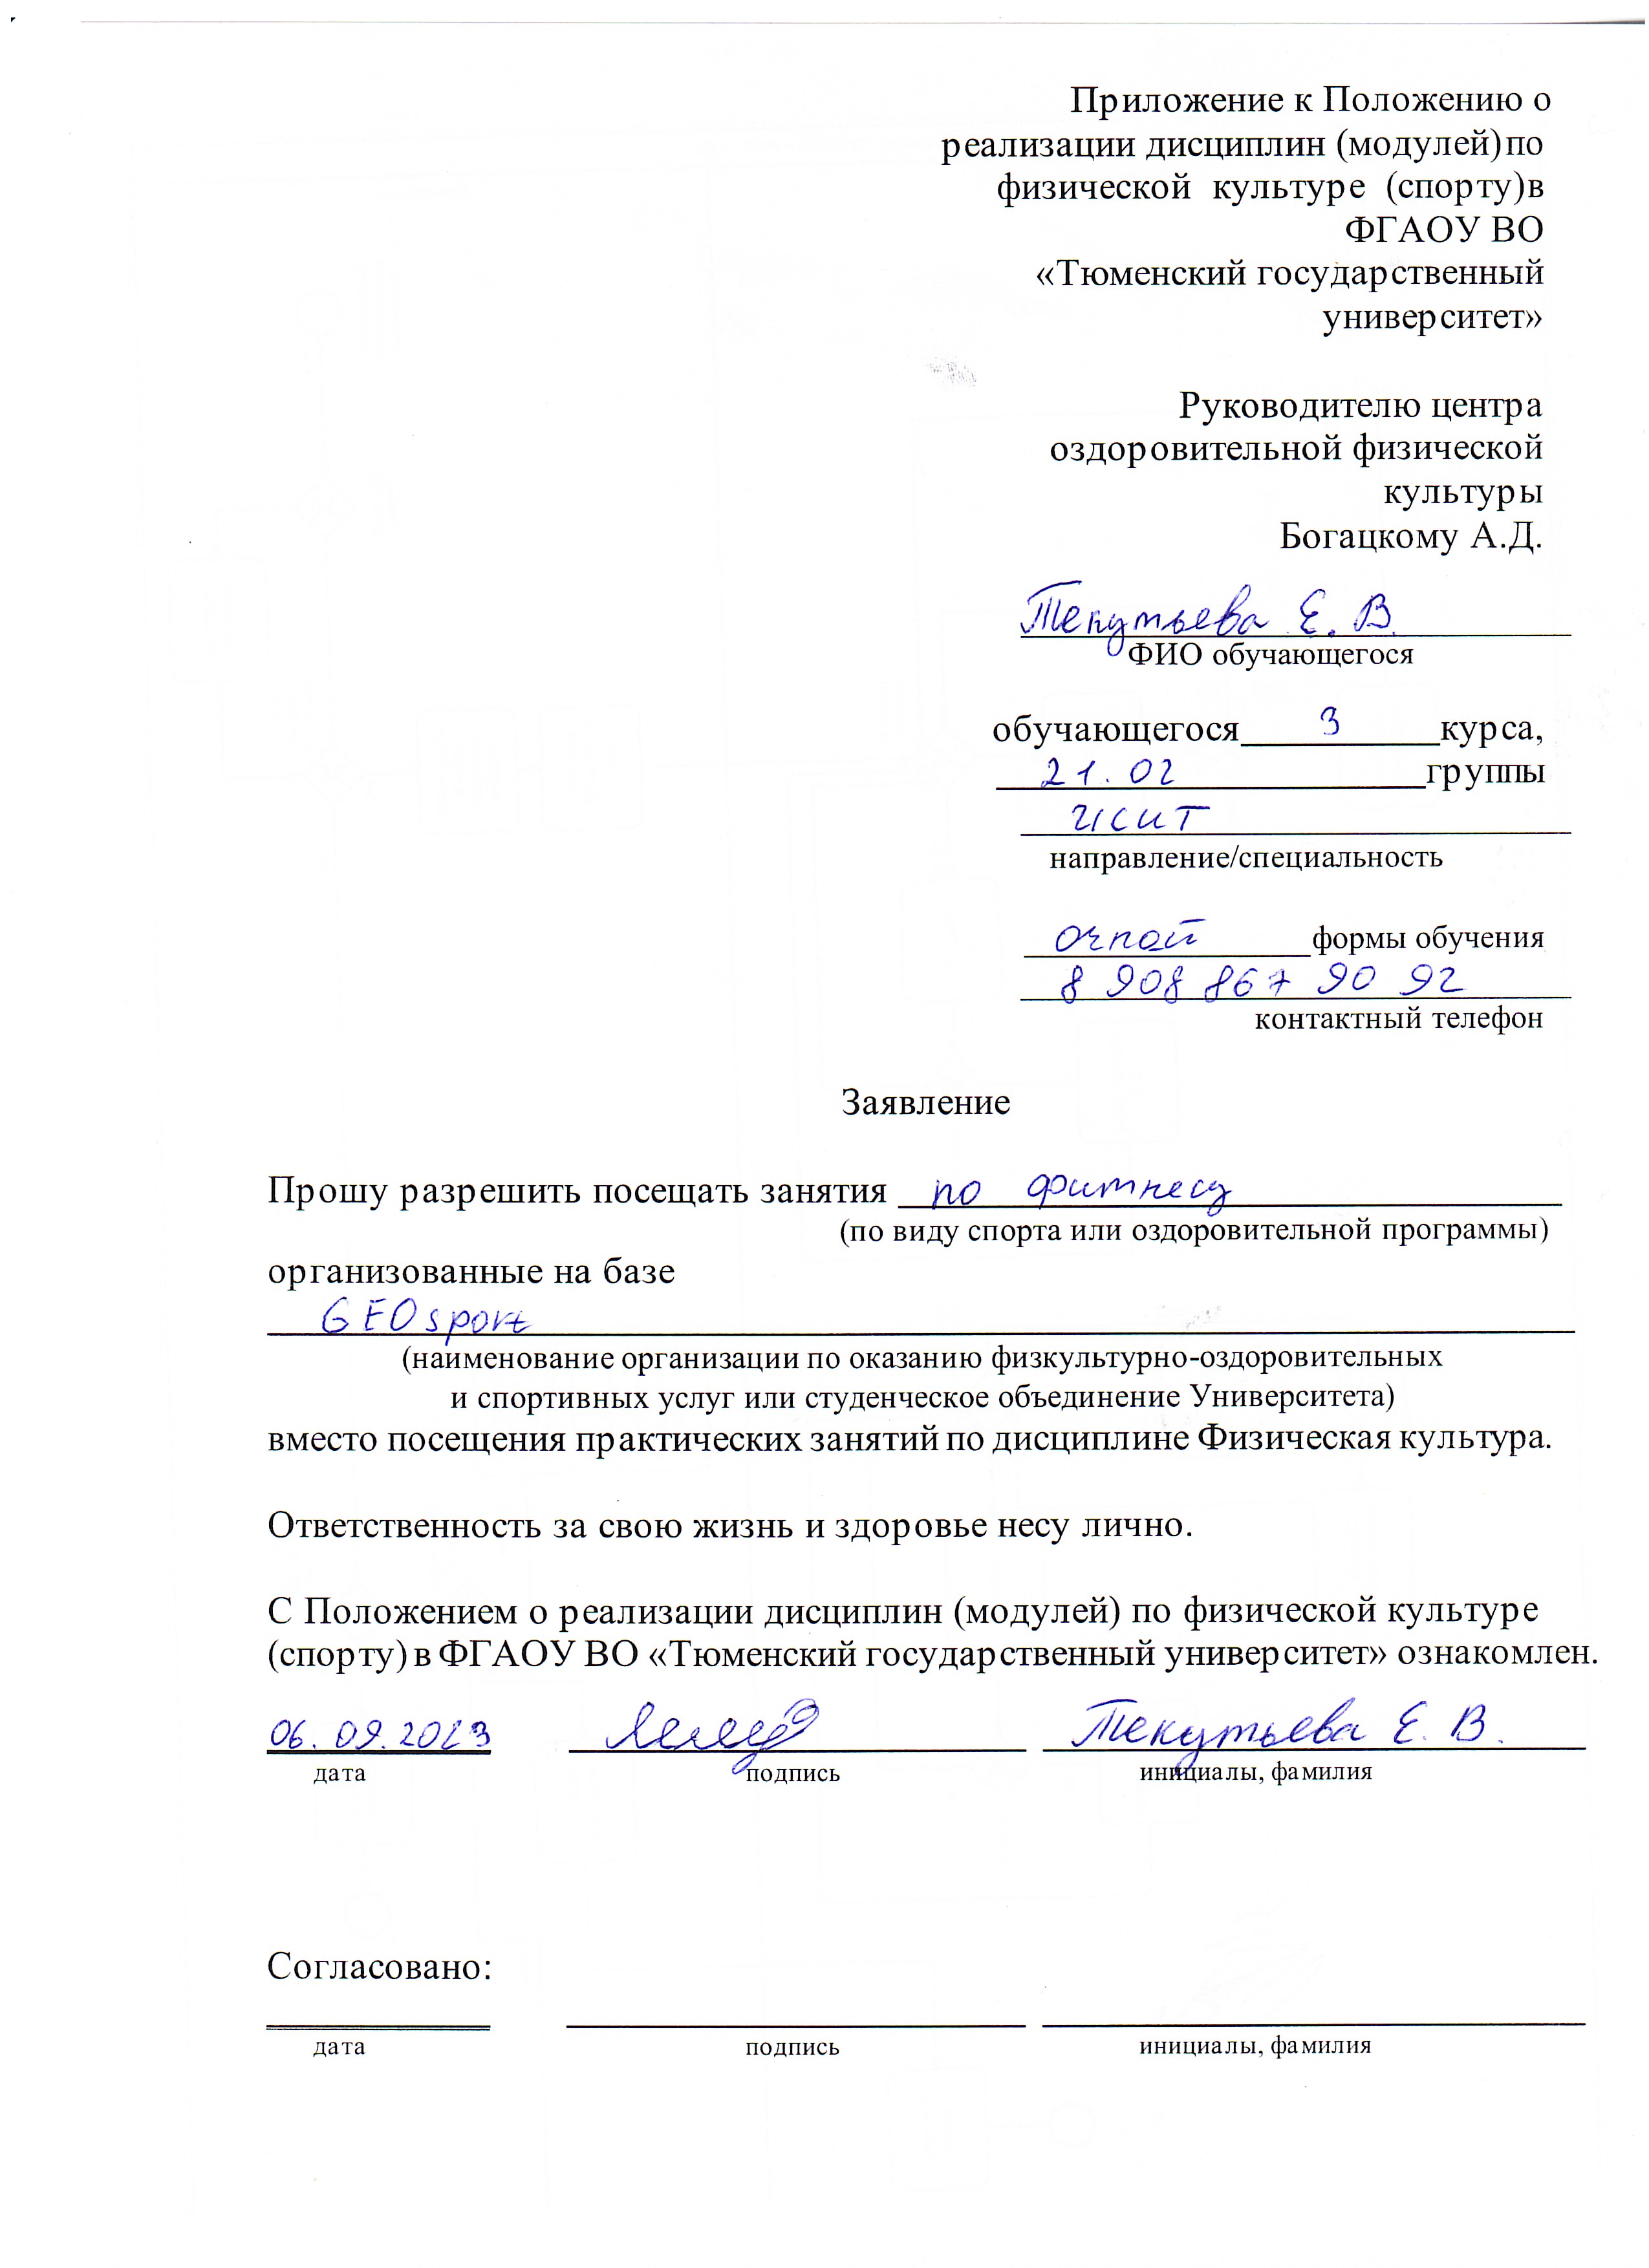 Приложение к Положению о
реализации дисциплин (модулей)по
физической культуре (спорту)в
ФГАОУ ВО
«Тюменский государственный
университет»
Руководителю центра
оздоровительной физической
культуры
Богацкому А.Д.
Текутьева Е. В.
ФИО обучающегося
обучающегося 3 курса,
21.02 группы
ИСИТ
направление/специальность
очной формы обучения
8 908 867 90 92
контактный телефон
Заявление
Прошу разрешить посещать занятия по фитнесу
(по виду спорта или оздоровительной программы)
организованные на базе
GEOsport
(наименование организации по оказанию физкультурно-оздоровительных
и спортивных услуг или студенческое объединение Университета)
вместо посещения практических занятий по дисциплине Физическая культура.
Ответственность за свою жизнь и здоровье несу лично.
С Положением о реализации дисциплин (модулей) по физической культуре
(спорту) в ФГАОУ ВО «Тюменский государственный университет» ознакомлен.
06.09.2023 Текутьева Е. В.
дата подпись инициалы, фамилия
Согласовано:
дата подпись инициалы, фамилия